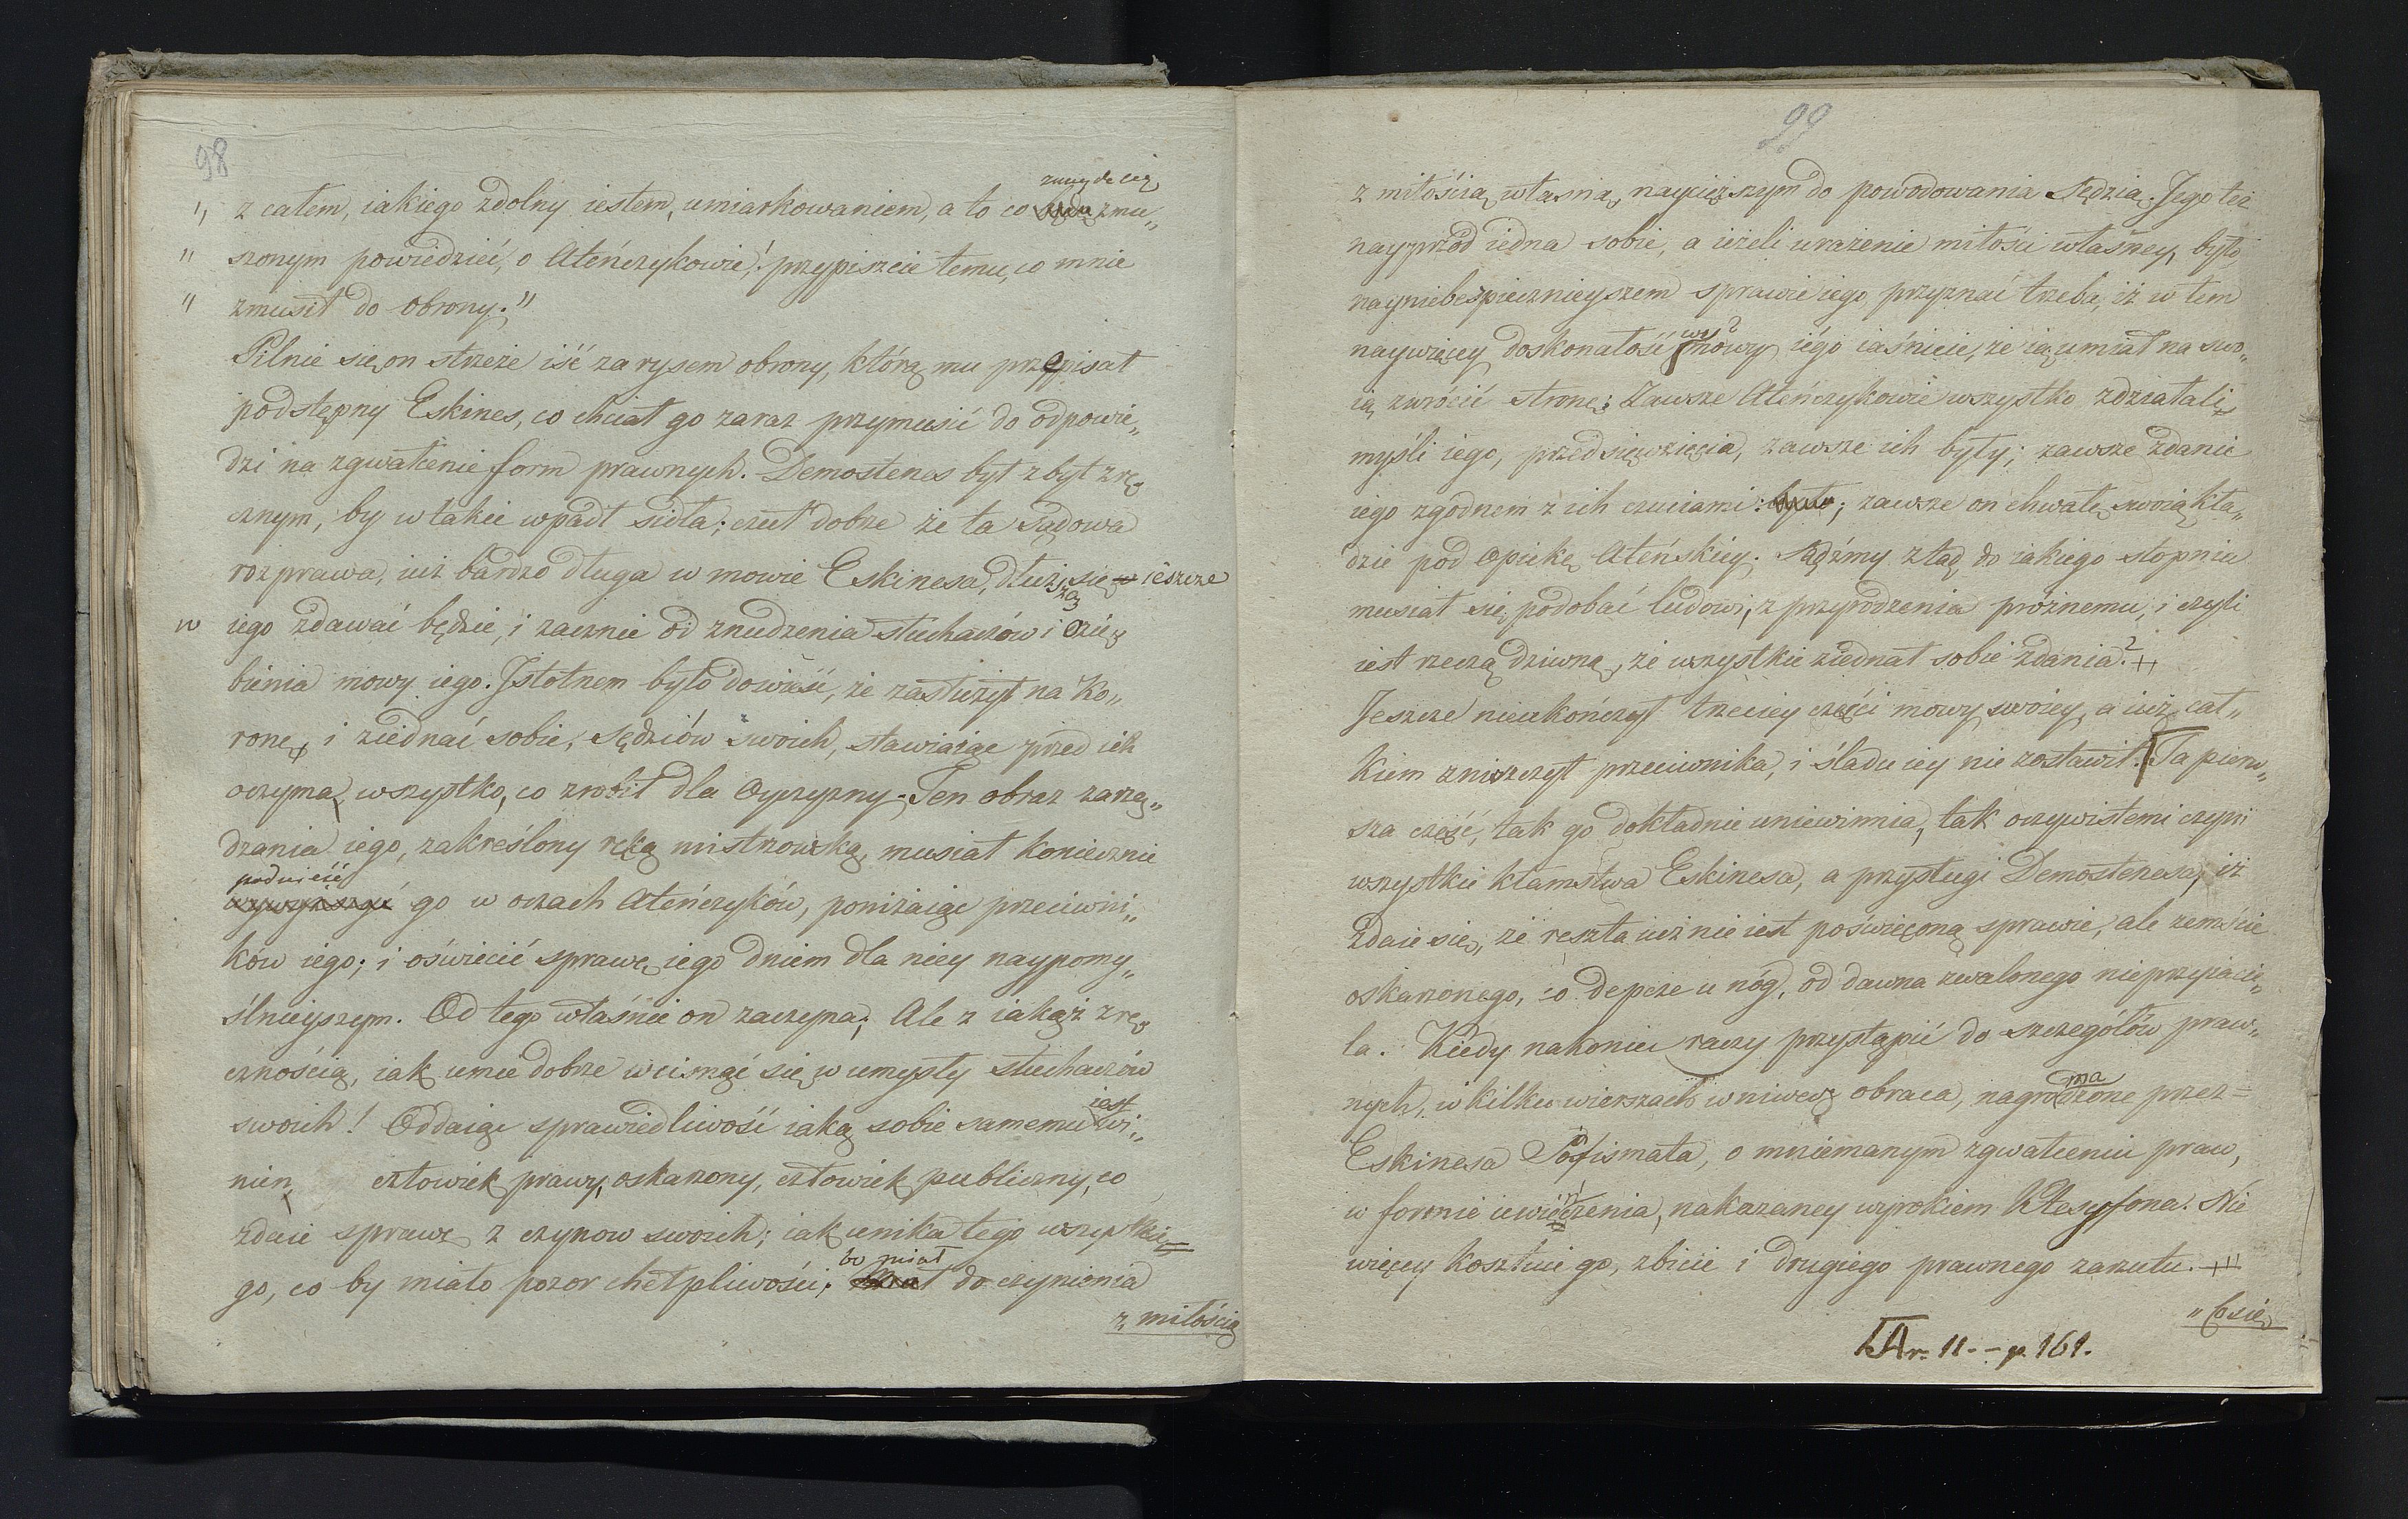 98
„ z całem, iakiego zdolny iestem, umiarkowaniem, a to co zmu„
„ szonym powiedzieć, o Ateńczykowie! przypiszcie temu, co mnie
„ zmusił do obrony."
Pilnie się on strzeże iść za rysem obrony, którą mu przepisał
podstępny Eskines, co chciał go zaraz przymusić do odpowie„
dzi na zgwałcenie form prawnych. Demostenes był zbyt zrę„
cznym, by w takie wpadł sidła; czuł dobrze że ta Sądowa
rozprawa, iuż bardzo długa w mowie Eskinesa, dłuższą się ieszcze
w iego zdawać będzie, i zacznie od znudzenia słuchaczów i ozię„
bienia mowy iego. Istotnem było dowieść, że zasłużył na Ko„
ronę, i ziednać sobie, Sędziów swoich, stawiaiąc przed ich
oczyma, wszystko, co zrobił dla Oyczyzny. Ten obraz zarzą„
dzania iego, zakreślony ręką mistrzowską, musiał koniecznie
podnieść
go w oczach Ateńczyków, poniżaiąc przeciwni„
ków iego; i oświecić sprawę iego dniem dla niey naypomy„
ślnieyszym. Od tego właśnie on zaczyna; Ale z iakąż zrę„
cznością, iak umie dobrze wcisnąć się w umysły słuchaczów
swoich! Oddaiąc sprawiedliwość iaką sobie samemu iest wi„
nien człowiek prawy, oskarzony, człowiek publiczny, co
zdaie sprawę z czynow swoich; iak unika tego wszystkie=
go, co by miało pozor chełpliwości; bo miał do czynienia
z miłością
99
z miłością własną, naycięższym do powodowania Sędzią. Jego też
nayprzód iedna sobie, a ieżeli urażenie miłości własney, było
nayniebespiecznieyszem sprawie iego, przyznać trzeba, iż w tem
naywięcey doskonałość mowy iego iaśnieie, że ią umiał na swo„
ią zwrócić stronę: Zawsze Ateńczykowie wszystko zdziałali,
myśli iego, przedsięwzięcia, zawsze ich były; zawsze zdanie
iego zgodnem z ich czuciami: było; zawsze on chwałę swoią kła„
dzie pod opiekę Ateńskiey. Sądźmy ztąd, do iakiego stopnia
musiał się podobać ludowi, z przyrodzenia próżnemu, i czyli
iest rzeczą dziwną, że wszystkie ziednał sobie zdania?
Jeszcze nieukończył trzeciey części mowy swoiey, a iuż cał„
kiem zniszczył przeciwnika, i śladu iey nie zostawił. Ta pierw„
sza część, tak go dokładnie uniewinnia, tak oczywistemi czyni
wszystkie kłamstwa Eskinesa, a przysługi Demostenesa, iż
zdaie się, że reszta iuż nie iest poświęconą sprawie, ale zemście
oskarzonego, co depcze u nóg, od dawna zwalonego nieprzyiacie„
la. Kiedy nakoniec raczy przystąpić do szczegółów praw„
nych, w kilku wierszach wniwecz obraca, nagromadzone przez=
Eskinesa Sofismata, o mniemanym zgwałceniu praw,
w formie uwieńczenia, nakazaney wyrokiem Ktesyfona. Nie
więcey kosztuie go, zbicie i drugiego prawnego zarzutu.
„ Co się
Ar. 11. -- p. 161.